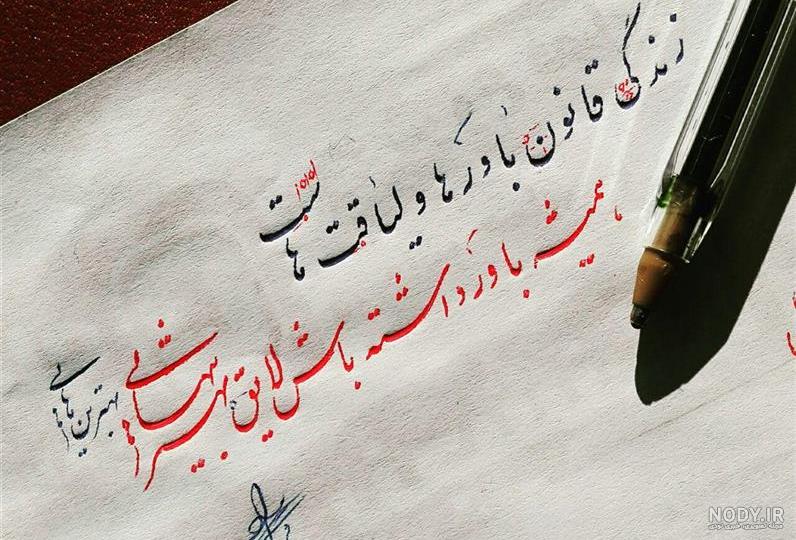 زندگی قانون باورها و لیاقت هاست
همیشه باور داشته باش لایق
بهترین هایی
NODY.IR